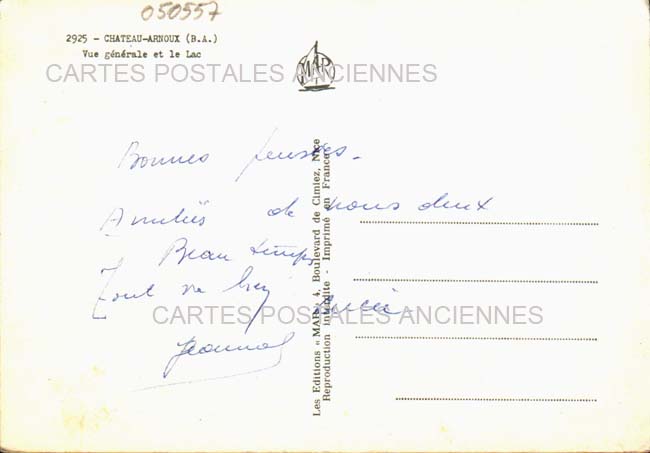 050557
2925 - CHATEAU-ARNOUX (B.A.)
Vue générale et le Lac
MAR
CARTES POSTALES ANCIENNES
Bonnes pensées.
Amitiés de nous deux
Beau temps
Tout va bien
CARTES POSTALES ANCIENNES
Les Editions « MAR » 4, Boulevard de Cimiez, Nice
Reproduction interdite - Imprimé en France